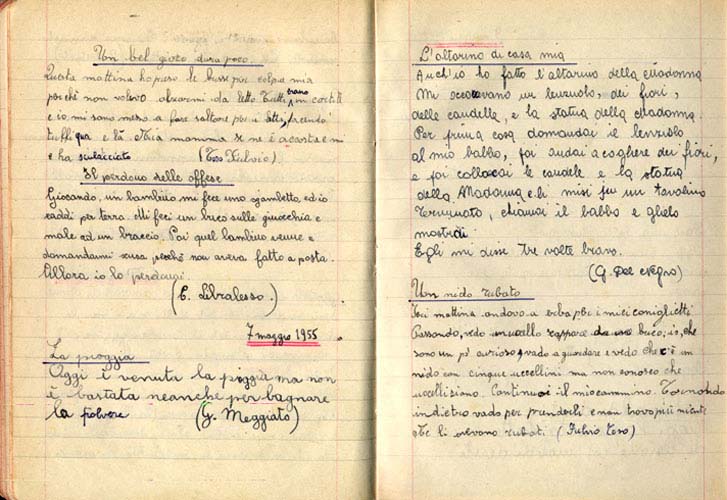 Un bel gioco dura poco.
Questa mattina ho preso le busse per colpa mia
perchè non volevo alzarmi da letto. Tutti erano in cortile
e io mi sono messo a fare saltare per i letti, facendo
tuffi qua e là. Mia mamma se ne è accorta e mi
ha sculacciato (Toso Fulvio).
Il perdono delle offese
Giocando, un bambino mi fece uno sgambetto, ed io
caddi per terra. Mi feci un buco sulle ginocchia e
male ad un braccio. Poi quel bambino venne a
domandarmi scusa perchè non aveva fatto a posta.
Allora io lo perdonai.
(E. Libralesso.)
7 maggio 1955.
La pioggia
Oggi è venuta la pioggia ma non
è bastata neanche per bagnare
la polvere (G. Meggiato)
L'altarino di casa mia
Anch'io ho fatto l'altarino della Madonna
Mi occorrevano un lenzuolo, dei fiori,
delle candelle, e la statua della Madonna.
Per prima cosa domandai il lenzuolo
al mio babbo, poi andai a cogliere dei fiori,
e poi collocai le candele e la statua
della Madonna e li misi su un tavolino
Terminato, chiamai il babbo e glielo
mostrai.
Egli mi disse tre volte bravo.
(G. Dal Negro)
Un nido rubato
Ieri mattina andavo a erba per i miei coniglietti
Passando, vedo un uccello scappare da un buco; io, che
sono un pò curioso, vado a guardare e vedo che c'è un
nido con cinque uccellini ma non conosco che
uccelli siano. Continuai il mio cammino. Tornando
indietro vado per prenderli e non trovo più niente
Me li avevano rubati. (Fulvio Toso)